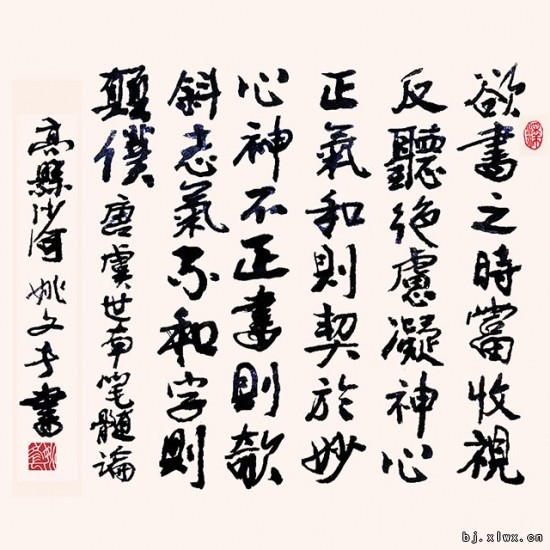 欲書之時當收視
反聽絕慮凝神心
正氣和則契於妙
心神不正書則欹
斜志氣不和字則
顛僕唐虞世南筆髓論
高縣沙河姚文書
bj.xlwx.cn